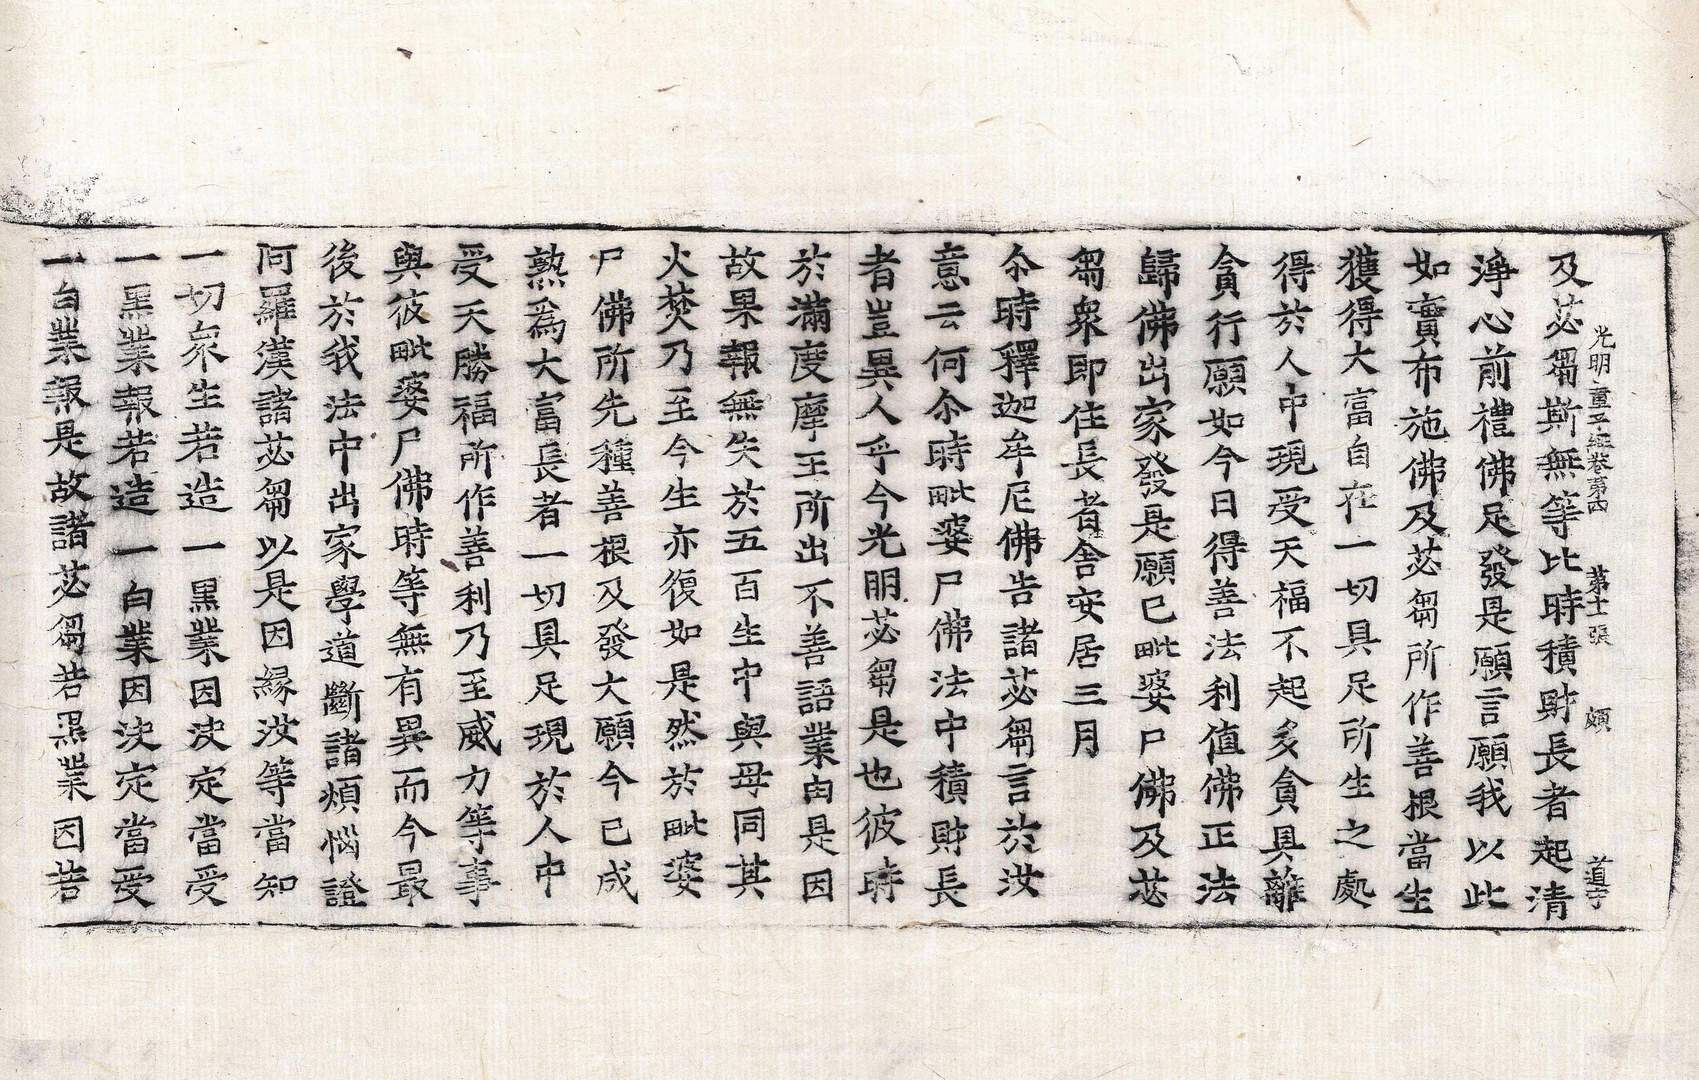 光明童子經卷第四 第十一張 頗 道寺
及苾芻斯無等比時積財長者起清
淨心前禮佛足發是願言願我以此
如實布施佛及苾芻所作善根當生
獲得大富自在一切具足所生之處
得於人中現受天福不起多貪具離
貪行願如今日得善法利值佛正法
歸佛出家發是願已毗婆尸佛及苾
芻衆即住長者舍安居三月
尒時釋迦牟尼佛告諸苾芻言於汝
意云何尒時毗婆尸佛法中積財長
者豈異人乎今光明苾芻是也彼時
於滿度摩王所出不善語業由是因
故果報無失於五百生中與母同其
火焚乃至今生亦復如是然於毗婆
尸佛所先種善根及發大願今已成
熟爲大富長者一切具足現於人中
受天勝福所作善利乃至威力等事
與彼毗婆尸佛時等無有異而今最
後於我法中出家學道斷諸煩惱證
阿羅漢諸苾芻以是因緣汝等當知
一切衆生若造一黑業因決定當受
一黑業報若造一白業因決定當受
一白業報是故諸苾芻若黑業因若